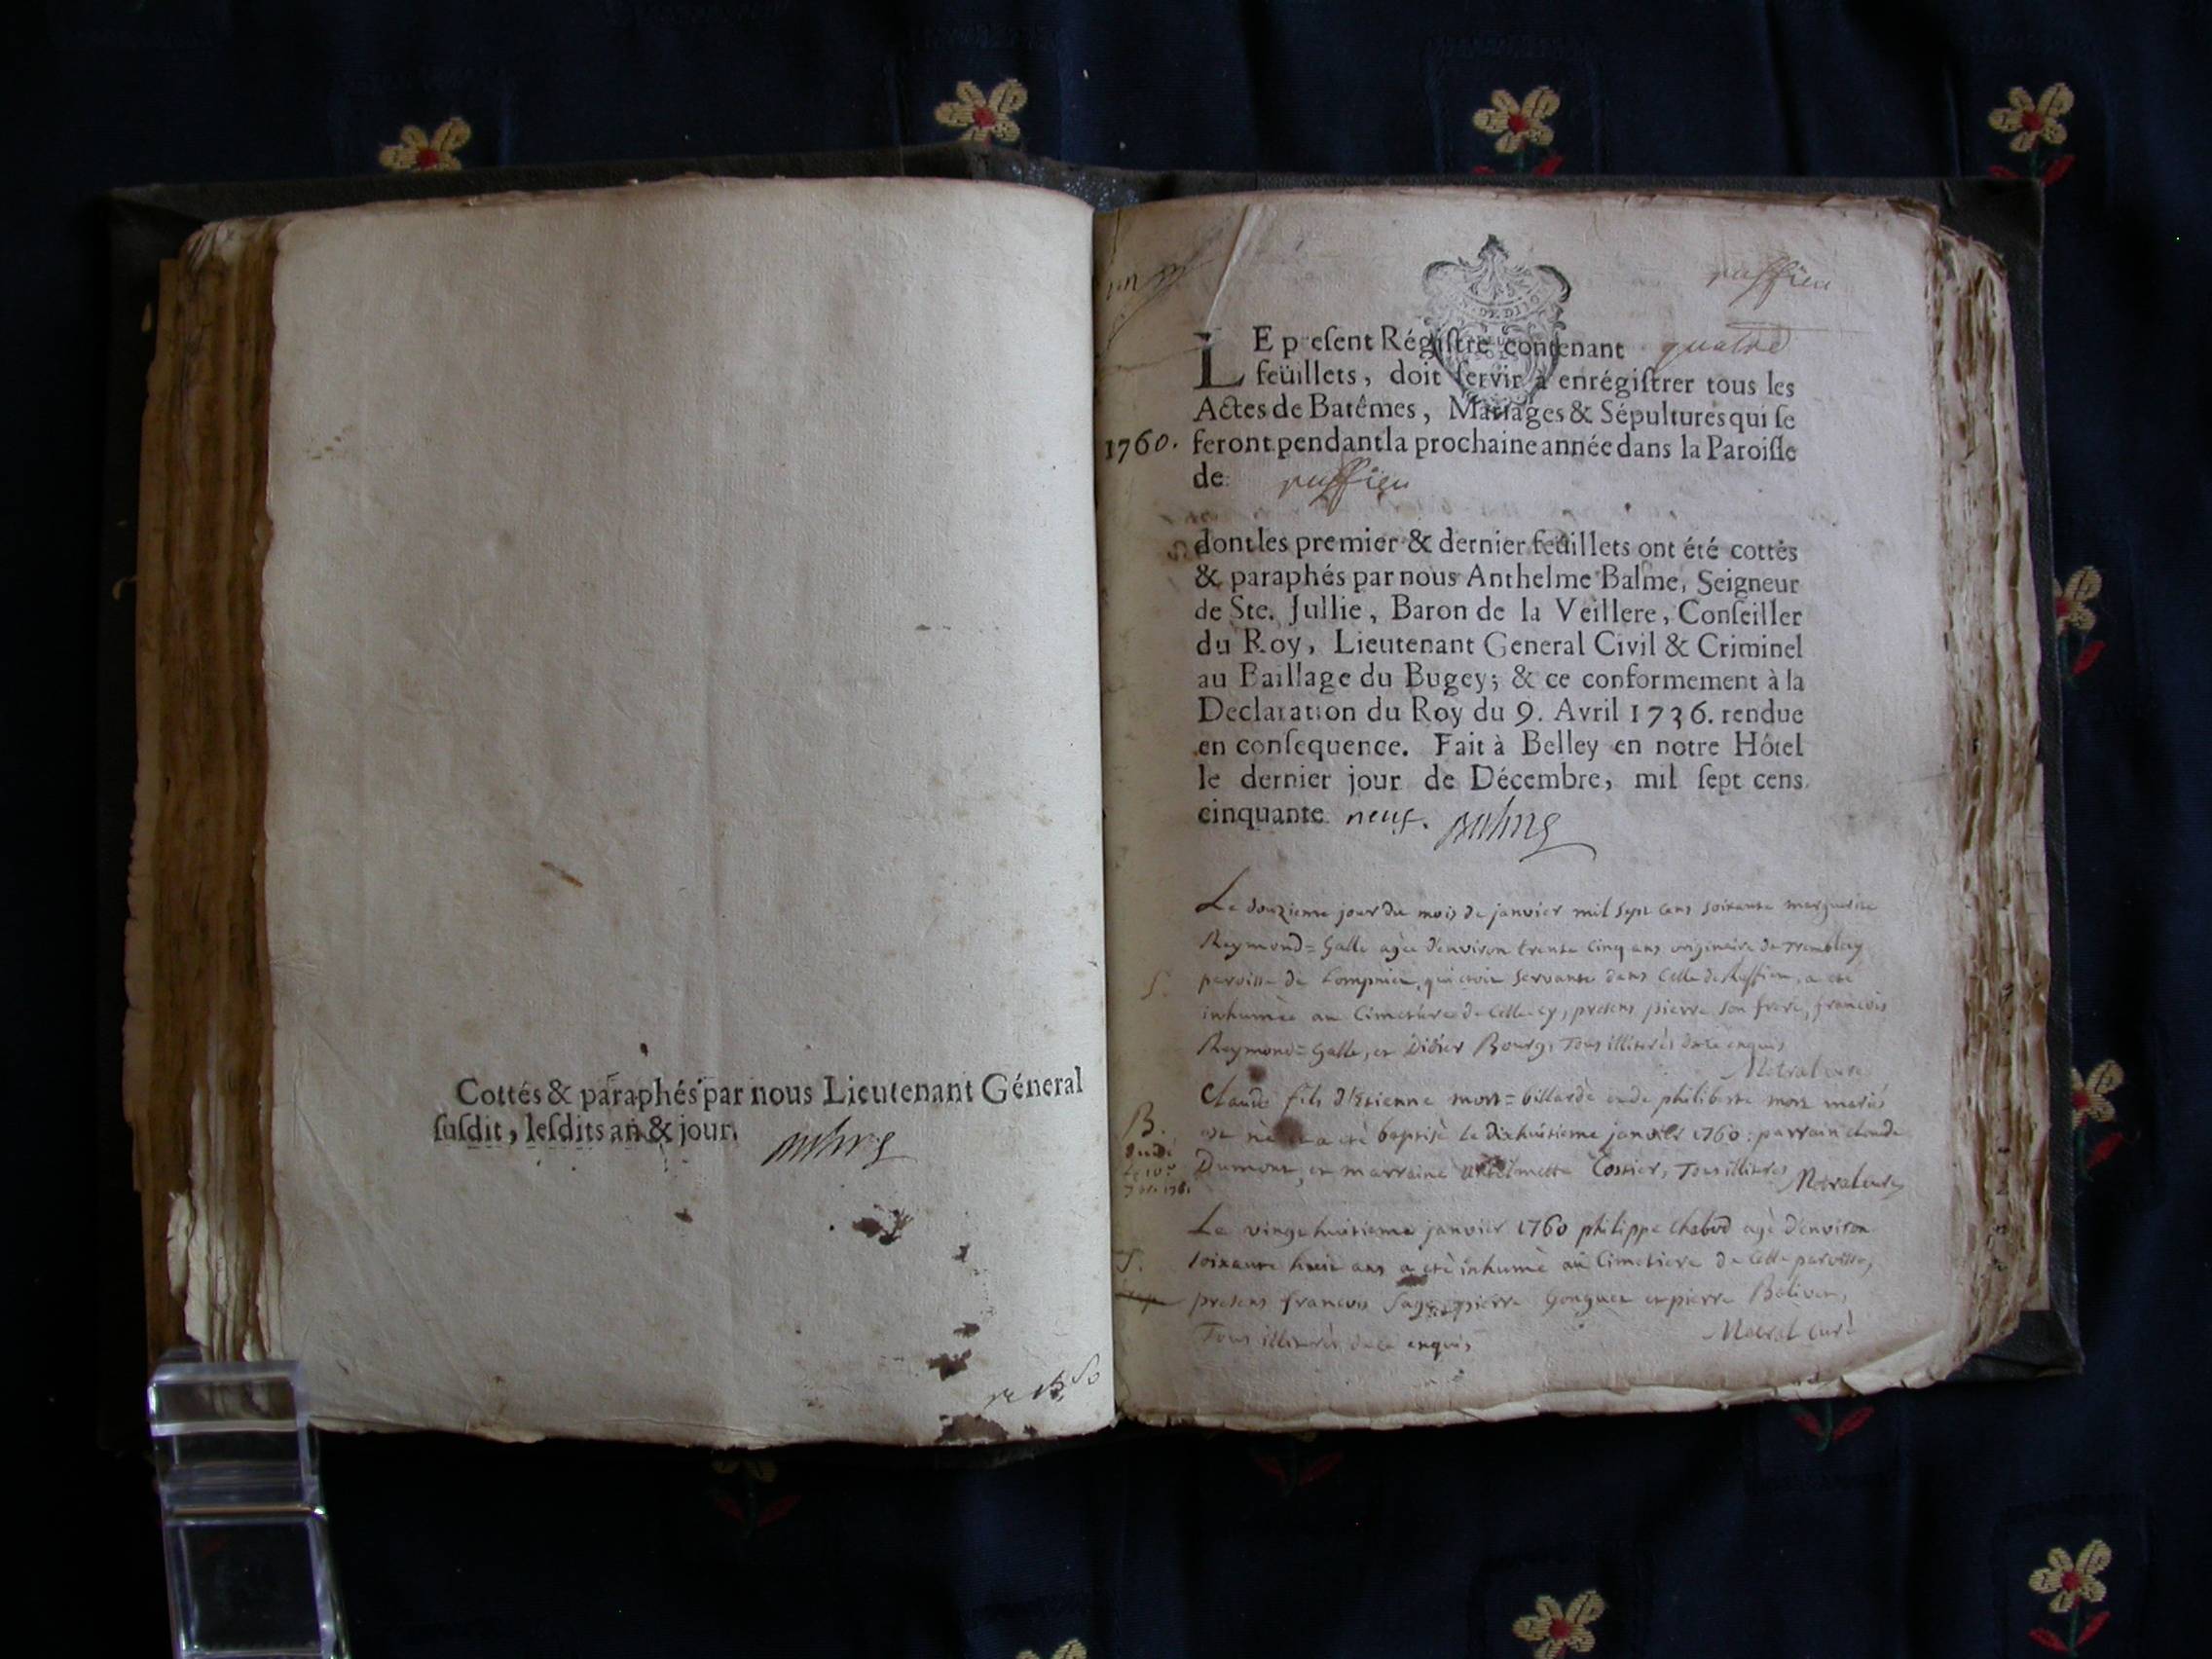 Cottés & paraphés par nous Lieutenant Géneral
ſuſdit, leſdits an & jour.
ruffieu
LE preſent Régiſtre contenant quatre
feüillets, doit ſervir à enrégiſtrer tous les
Actes de Batêmes, Mariages & Sépultures qui ſe
1760. feront pendant la prochaine année dans la Paroiſſe
de ruffieu
dont les premier & dernier feüillets ont été cottés
& paraphés par nous Anthelme Balme, Seigneur
de Ste. Jullie, Baron de la Veillere, Conſeiller
du Roy, Lieutenant General Civil & Criminel
au Baillage du Bugey; & ce conformement à la
Declaration du Roy du 9. Avril 1736. rendue
en conſequence. Fait à Belley en notre Hôtel
le dernier jour de Décembre, mil ſept cens
cinquante neuf.
Le douzieme jour du mois de janvier mil sept cens soixante marguerite
Reymond=Galle agée d'environ trente cinq ans originaire de
paroisse de qui etoit servante dans celle de Ruffieu, a eté
inhumée au Cimetiere de celle cy, presens pierre son frere, francois
Reymond=Galle, et Didier Bourg, Tous illiterés de ce enquis
Claude fils d'Etienne et de philiberte mariés
est né a eté baptisé le dixhuitieme janvier 1760: parrain claude
B.
Dumont, et marraine Tous illiteres
Le vingt huitieme janvier 1760 philippe chabod agé d'environ
S. soixante huit ans a eté inhumé au Cimetiere de cette paroisse,
presens francois pierre et pierre
Tous illiterés de ce enquis